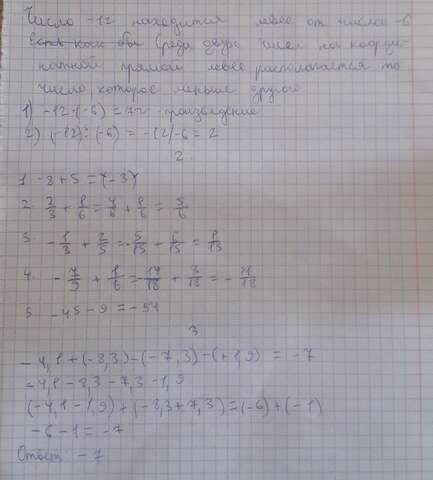 Число -12 находится левее от числа -6
Есть как бы Среди двух чисел на коорди-
натной прямой левее располагается то
число, которое меньше другого
1) -12·(-6) = 72 - произведение
2) (-12):(-6) = -12/-6 = 2
2.
1. -8+5=(-3)
2. 2/3 + 1/6 = 4/6 + 1/6 = 5/6
3. -1/3 + 2/5 = -5/15 + 6/15 = 1/15
4. -7/9 + 1/6 = -14/18 + 3/18 = -11/18
5. -45-9=-54
3
-4,1+(-8,3)-(-7,3)-(+1,9) = -7
-4,1-8,3-7,3-1,9
(-4,1-1,9)+(-8,3+7,3)=(-6)+(-1)
-6-1=-7
Ответ -7